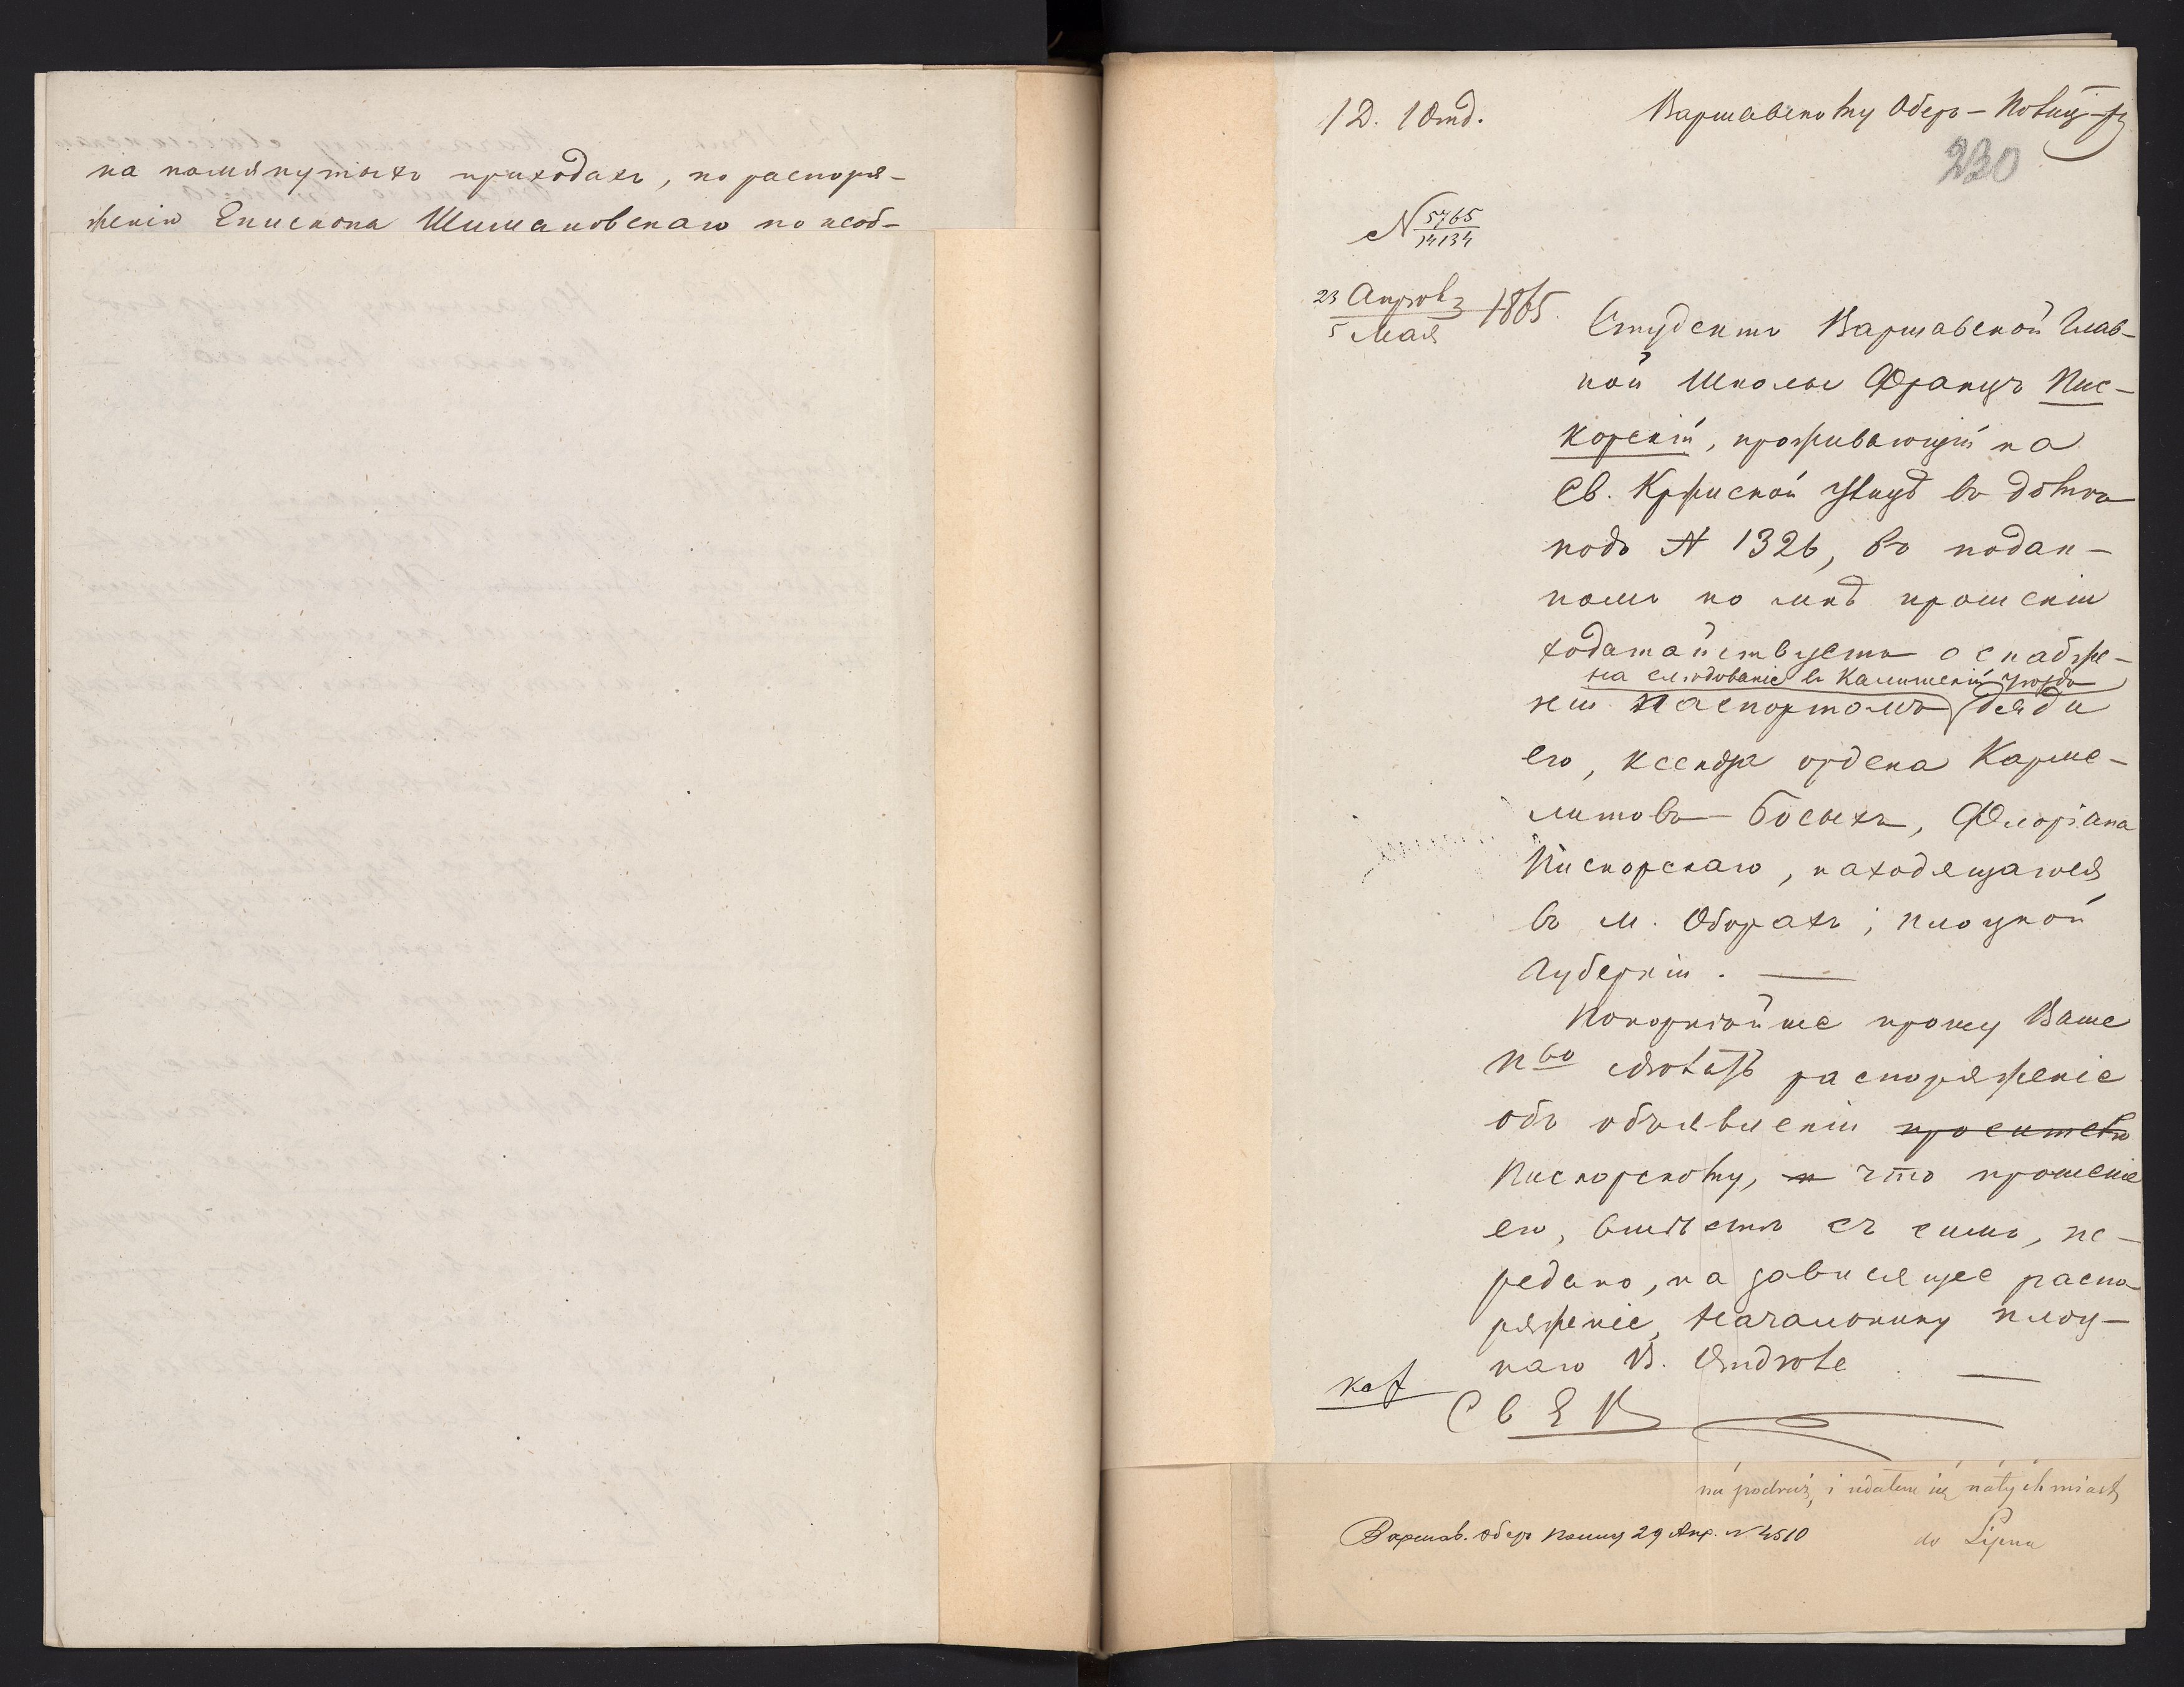 на помянутыхъ приходахъ, по распоря-
женію Епископа Шимановскаго по необ-
1 Д. 1 Отд.
Варшавскому Оберъ-Полиц-ру
230
N 5765/14134
23 Апрѣля / 5 Мая 1865.
Студентъ Варшавской Глав-
ной Школы Францъ Пис-
корскій, проживающій на
Св. Кржиской улицѣ въ домѣ
подъ N 1326, въ подан-
номъ ко мнѣ прошеніи
ходатайствуетъ о снабже-
на слѣдованіе въ Калишскій уѣздъ
ніи паспортомъ дяди
его, ксендза ордена Карме-
литовъ-Босыхъ, Флоріана
Пискорскаго, находящагося
въ м. Оборахъ, Плоцкой
Губерніи.
Покорнѣйше прошу Ваше
П-во сдѣлать распоряженіе
объ объявленіи просителю
Пискорскому, что прошеніе
его, вмѣстѣ съ симъ, пе-
редано, на зависящее распо
ряженіе, Начальнику Плоц-
каго В. Отдѣла
С в Е К
na podróż, i udałem się natychmiast
Варшав. Оберъ Полиц 29 Апр. N 4510
do Lipna